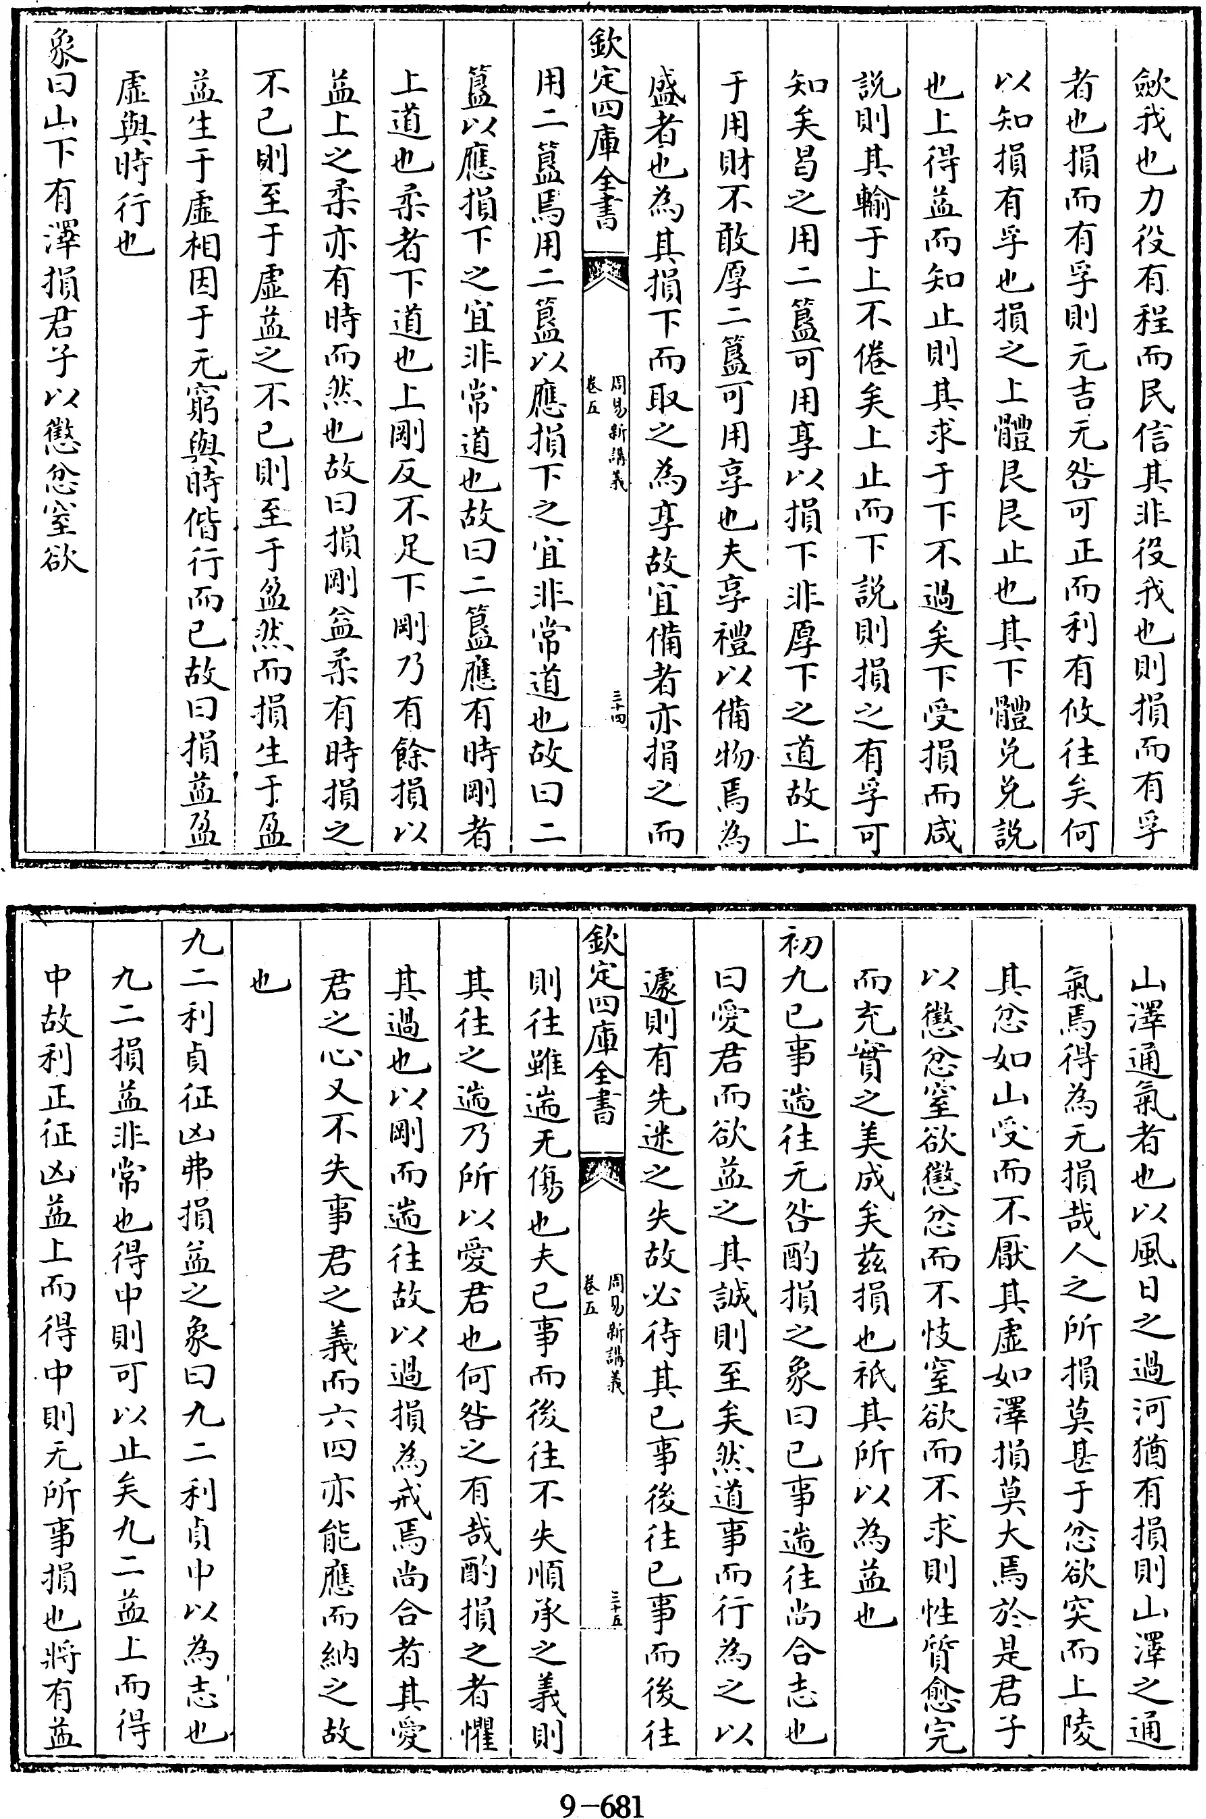 歛我也力役有程而民信其非役我也則損而有孚
者也損而有孚則元吉无咎可正而利有攸往矣何
以知損有孚也損之上體艮艮止也其下體兌兌說
也上得益而知止則其求于下不過矣下受損而咸
說則其輸于上不倦矣上止而下說則損之有孚可
知矣曷之用二簋可用享以損下非厚下之道故上
于用財不敢厚二簋可用享也夫享禮以備物焉為
盛者也為其損下而取之為享故宜備者亦損之而
欽定四庫全書
周易新講義
卷五
三十四
用二簋焉用二簋以應損下之宜非常道也故曰二
簋以應損下之宜非常道也故曰二簋應有時剛者
上道也柔者下道也上剛反不足下剛乃有餘損以
益上之柔亦有時而然也故曰損剛益柔有時損之
不已則至于虛益之不已則至于盈然而損生于盈
益生于虛相因于无窮與時偕行而已故曰損益盈
虛與時行也
象曰山下有澤損君子以懲忿窒欲
山澤通氣者也以風日之過河猶有損則山澤之通
氣焉得為无損哉人之所損莫甚于忿欲突而上陵
其忿如山受而不厭其虛如澤損莫大焉於是君子
以懲忿窒欲懲忿而不忮窒欲而不求則性質愈完
而充實之美成矣茲損也祇其所以為益也
初九已事遄往无咎酌損之象曰已事遄往尚合志也
曰愛君而欲益之其誠則至矣然道事而行為之以
遽則有先迷之失故必待其已事後往已事而後往
欽定四庫全書
周易新講義
卷五
三十五
則往雖遄无傷也夫已事而後往不失順承之義則
其往之遄乃所以愛君也何咎之有哉酌損之者懼
其過也以剛而遄往故以過損為戒焉尚合者其愛
君之心又不失事君之義而六四亦能應而納之故
也
九二利貞征凶弗損益之象曰九二利貞中以為志也
九二損益非常也得中則可以止矣九二益上而得
中故利正征凶益上而得中則无所事損也將有益
9-681